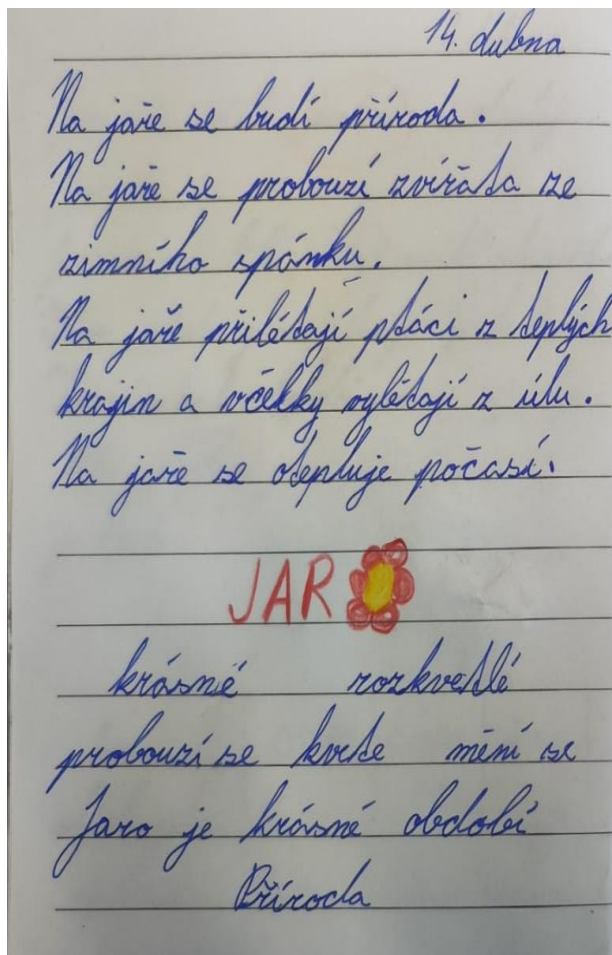 14. dubna
Na jaře se budí příroda.
Na jaře se probouzí zvířata ze
zimního spánku.
Na jaře přilétají ptáci z teplých
krajin a včelky vylétají z úlu.
Na jaře se otepluje počasí.
JAR
krásné rozkvetlé
probouzí se kvete mění se
Jaro je krásné období
Příroda